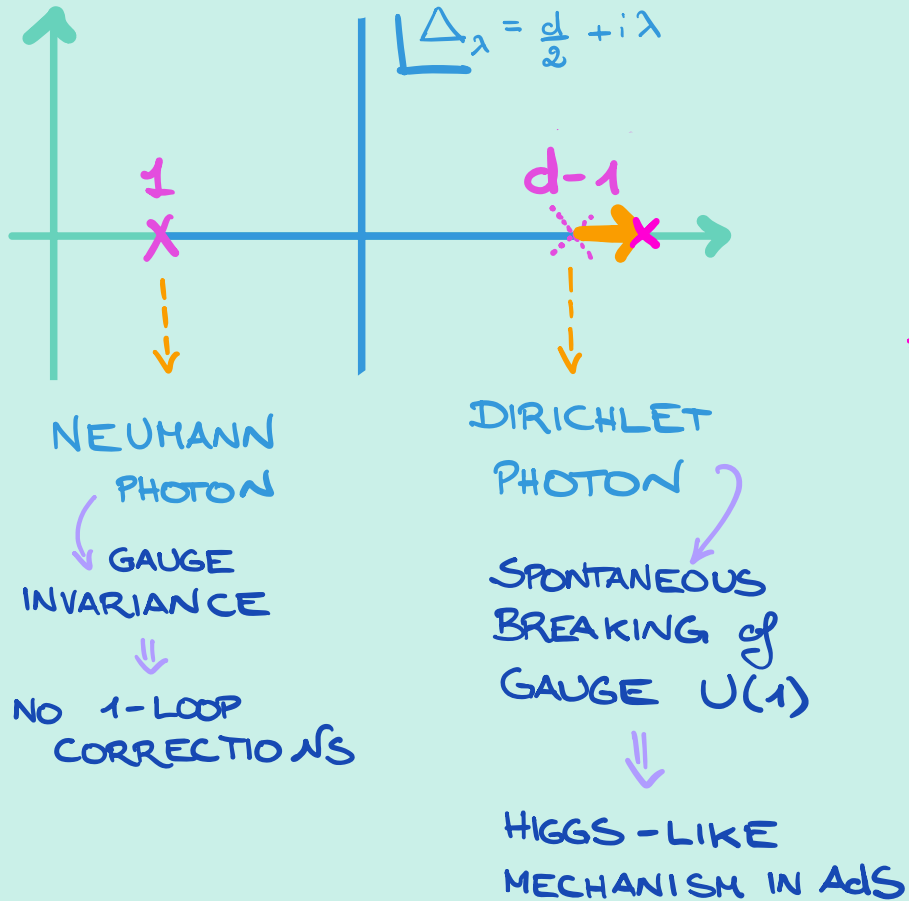 Δ_λ = d/2 + iλ
1
d-1
NEUMANN
PHOTON
GAUGE
INVARIANCE
NO 1-LOOP
CORRECTIONS
DIRICHLET
PHOTON
SPONTANEOUS
BREAKING of
GAUGE U(1)
HIGGS-LIKE
MECHANISM IN AdS